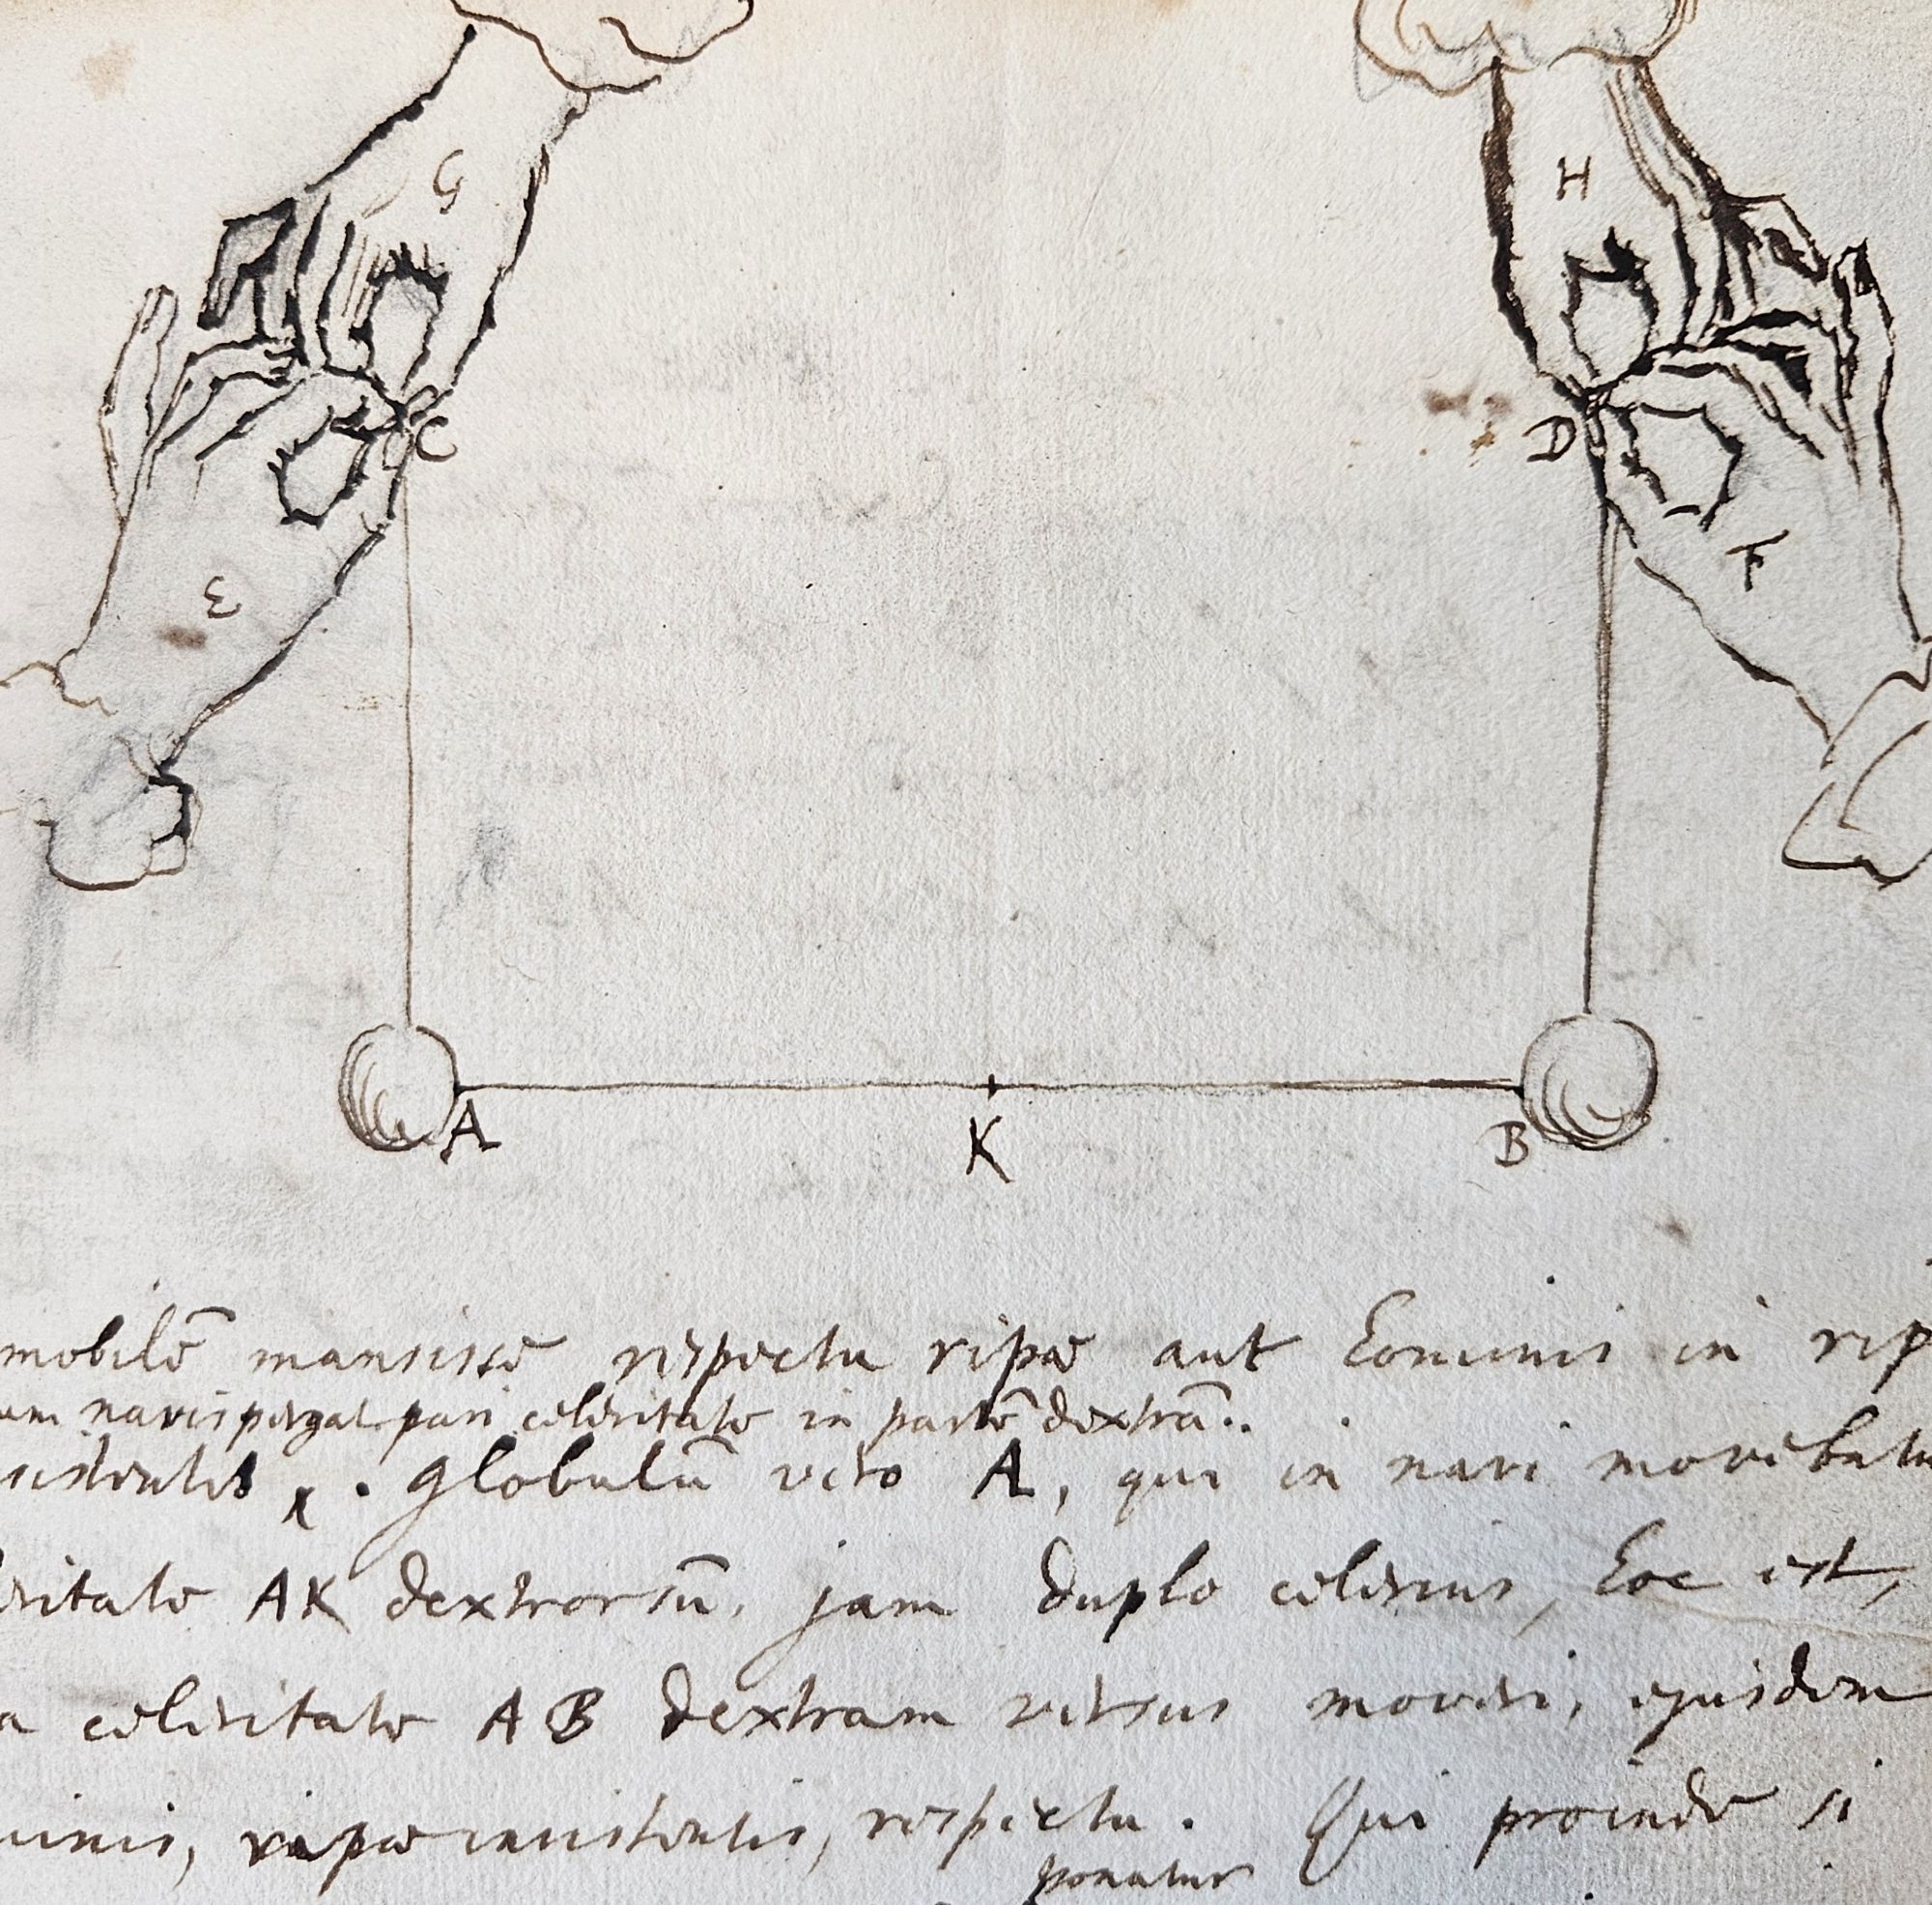 G
H
C
D
E
F
A
K
B
mobilē mansisse respectu ripæ aut hominis in rip
am navis pergat pari celeritate in partē dextrā.
sistentis . Globulū vero A, qui in navi movebatu
eritate AK dextrorsū, jam duplo celerius, hoc est,
a celeritate AB dextram versus moveri, ejusdem
inis, ripæ insistentis, respectu. Qui proinde si
ponatur